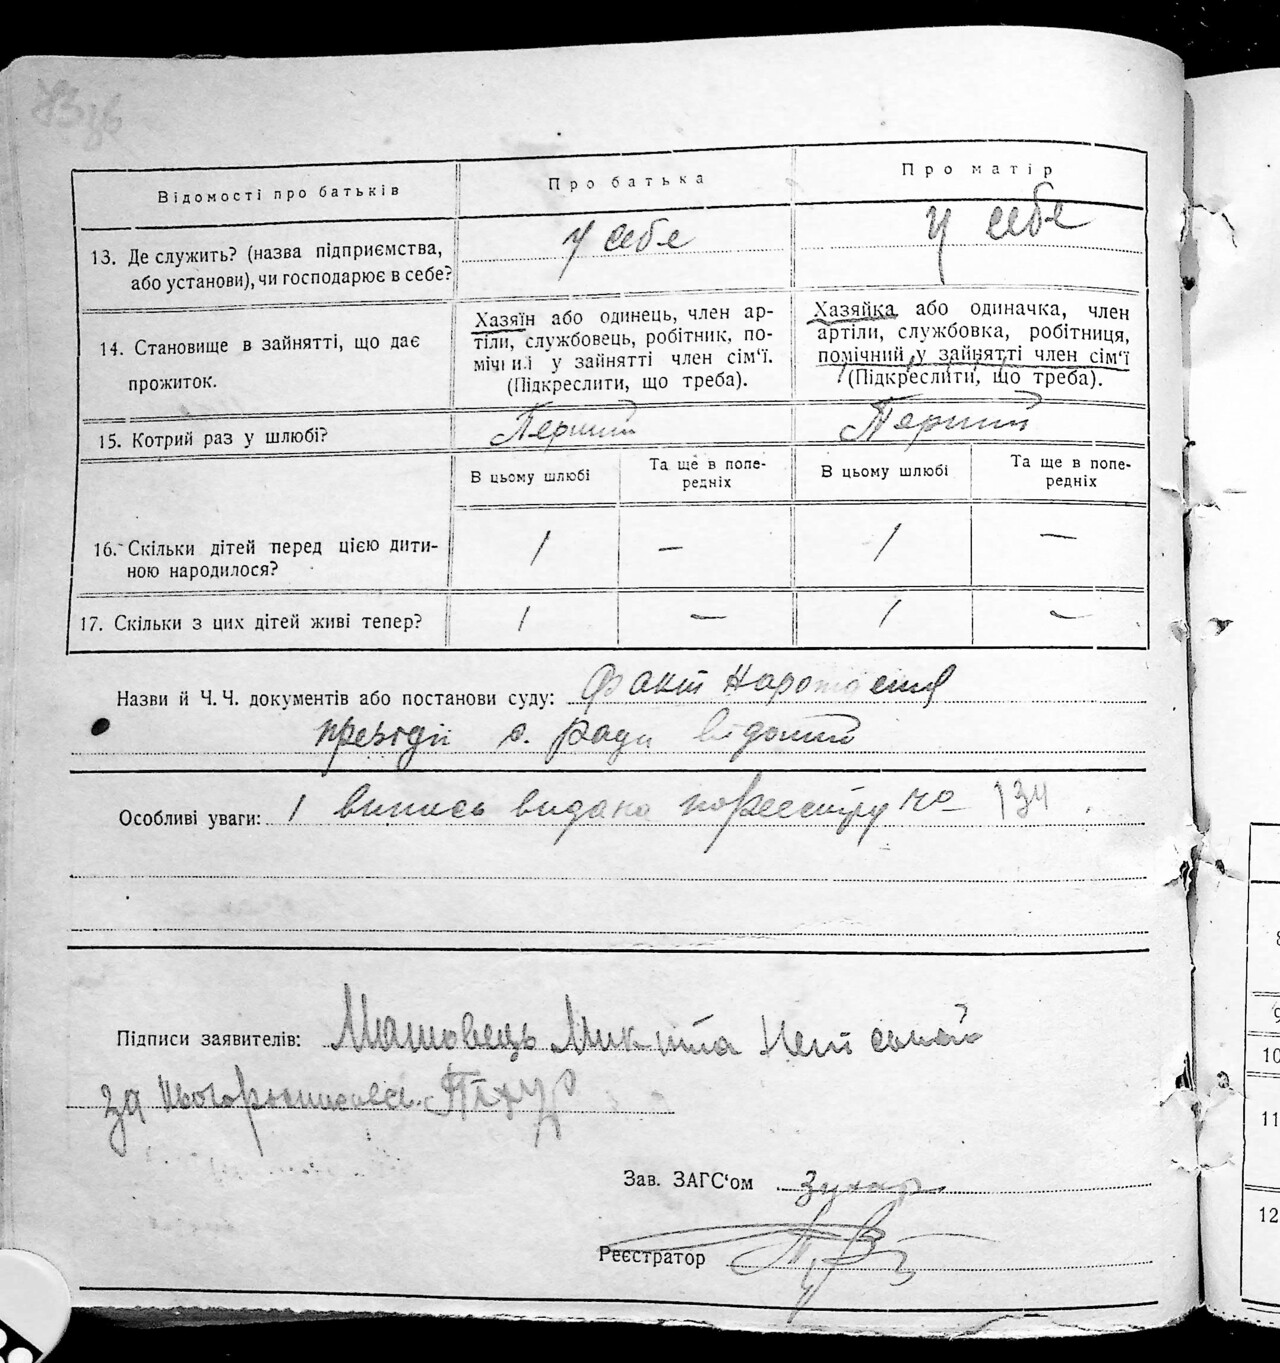 Відомості про батьків
Про батька
Про матір
13. Де служить? (назва підприємства, або установи), чи господарює в себе?
у себе
у себе
14. Становище в зайнятті, що дає прожиток.
Хазяїн або одинець, член ар-
тіли, службовець, робітник, по-
мічний у зайнятті член сім'ї.
(Підкреслити, що треба).
Хазяйка або одиначка, член
артіли, службовка, робітниця,
помічний у зайнятті член сім'ї
(Підкреслити, що треба).
15. Котрий раз у шлюбі?
Перший
Перший
В цьому шлюбі
Та ще в попе-
редніх
В цьому шлюбі
Та ще в попе-
редніх
16. Скільки дітей перед цією дити-
ною народилося?
1
—
1
—
17. Скільки з цих дітей живі тепер?
1
—
1
—
Назви й Ч. Ч. документів або постанови суду: факт народження
презідії с. ради відомий
Особливі уваги: 1 випись видана по реєстру № 134
Підписи заявителів: Машовець Микита
за нього
Зав. ЗАГС'ом
Реєстратор
8
9
10
11
12